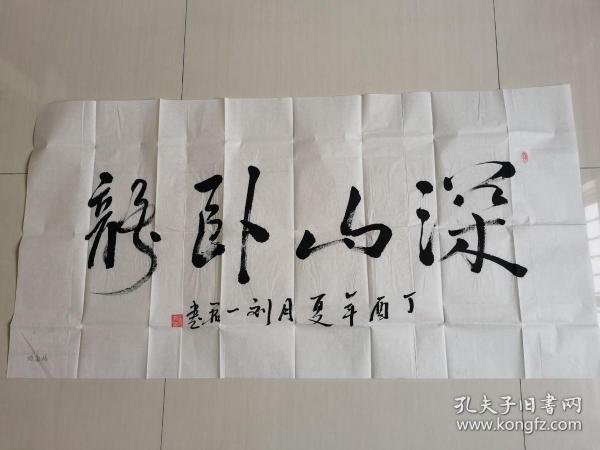 深山卧龍
丁酉年夏月刘一君書
孔夫子旧書网
www.kongfz.com